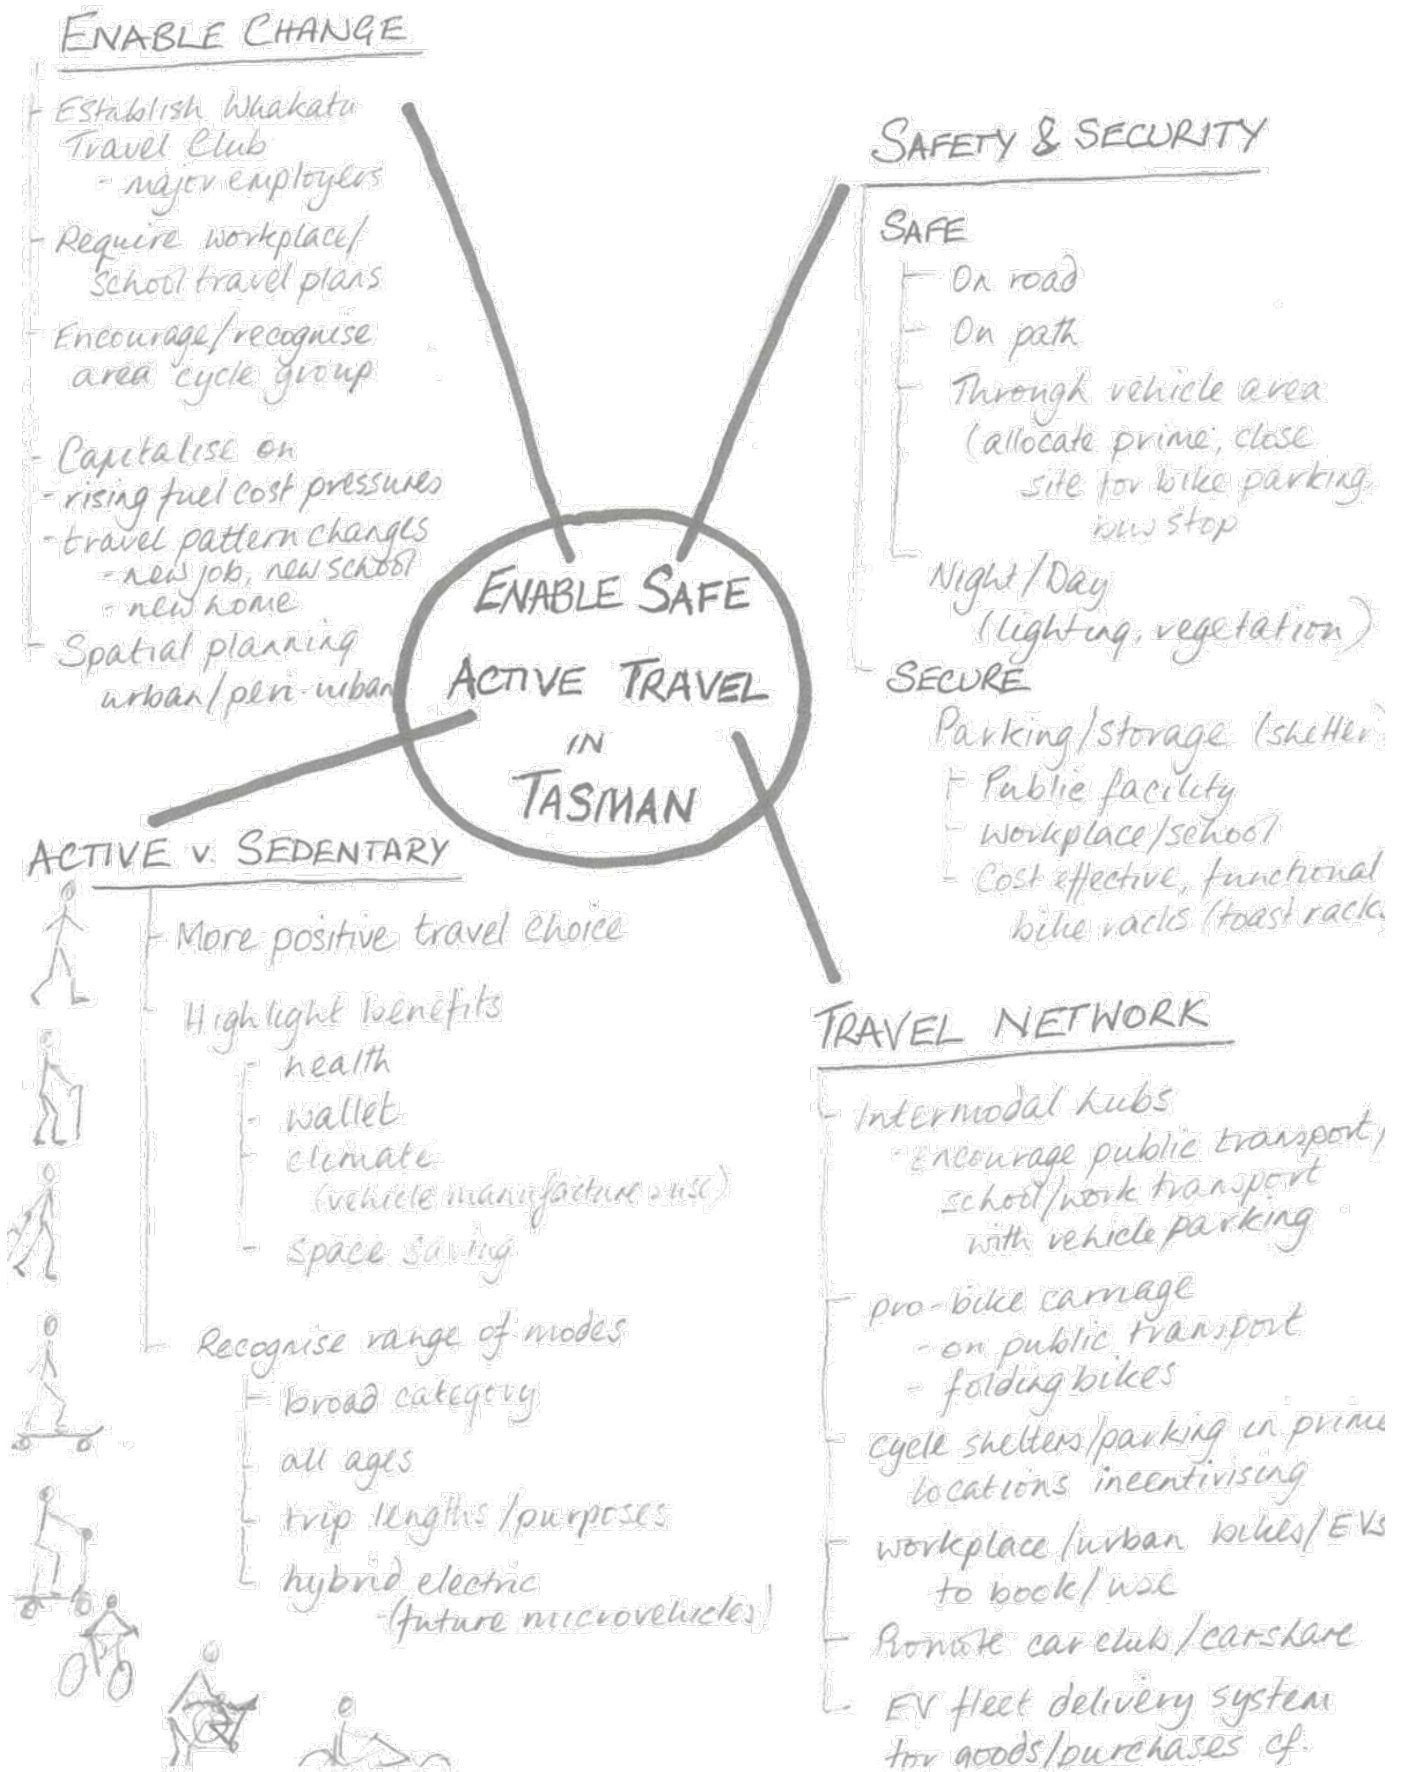 ENABLE CHANGE
- Establish Whakatu
Travel Club
- major employers
- Require workplace/
school travel plans
- Encourage/recognise
area cycle group
- Capitalise on
- rising fuel cost pressures
- travel pattern changes
- new job, new school
- new home
- Spatial planning
urban/peri-urban
SAFETY & SECURITY
SAFE
- On road
- On path
- Through vehicle area
(allocate prime, close
site for bike parking,
bus stop
- Night/Day
(lighting, vegetation)
- SECURE
Parking/storage (shelter)
- Public facility
- workplace/school
- Cost effective, functional
bike racks (toast rack
ENABLE SAFE
ACTIVE TRAVEL
IN
TASMAN
ACTIVE v. SEDENTARY
- More positive travel choice
- Highlight benefits
- health
- wallet
- climate
(vehicle manufacture & use)
- space saving
- Recognise range of modes
- broad category
- all ages
- trip lengths/purposes
- hybrid electric
- (future microvehicles)
TRAVEL NETWORK
- Intermodal hubs
- encourage public transport,
school/work transport
with vehicle parking
- pro-bike carriage
- on public transport
- folding bikes
- cycle shelters/parking in prime
locations incentivising
- workplace/urban bikes/EVs
to book/use
- Promote car club/carshare
- EV fleet delivery system
for goods/purchases cf.